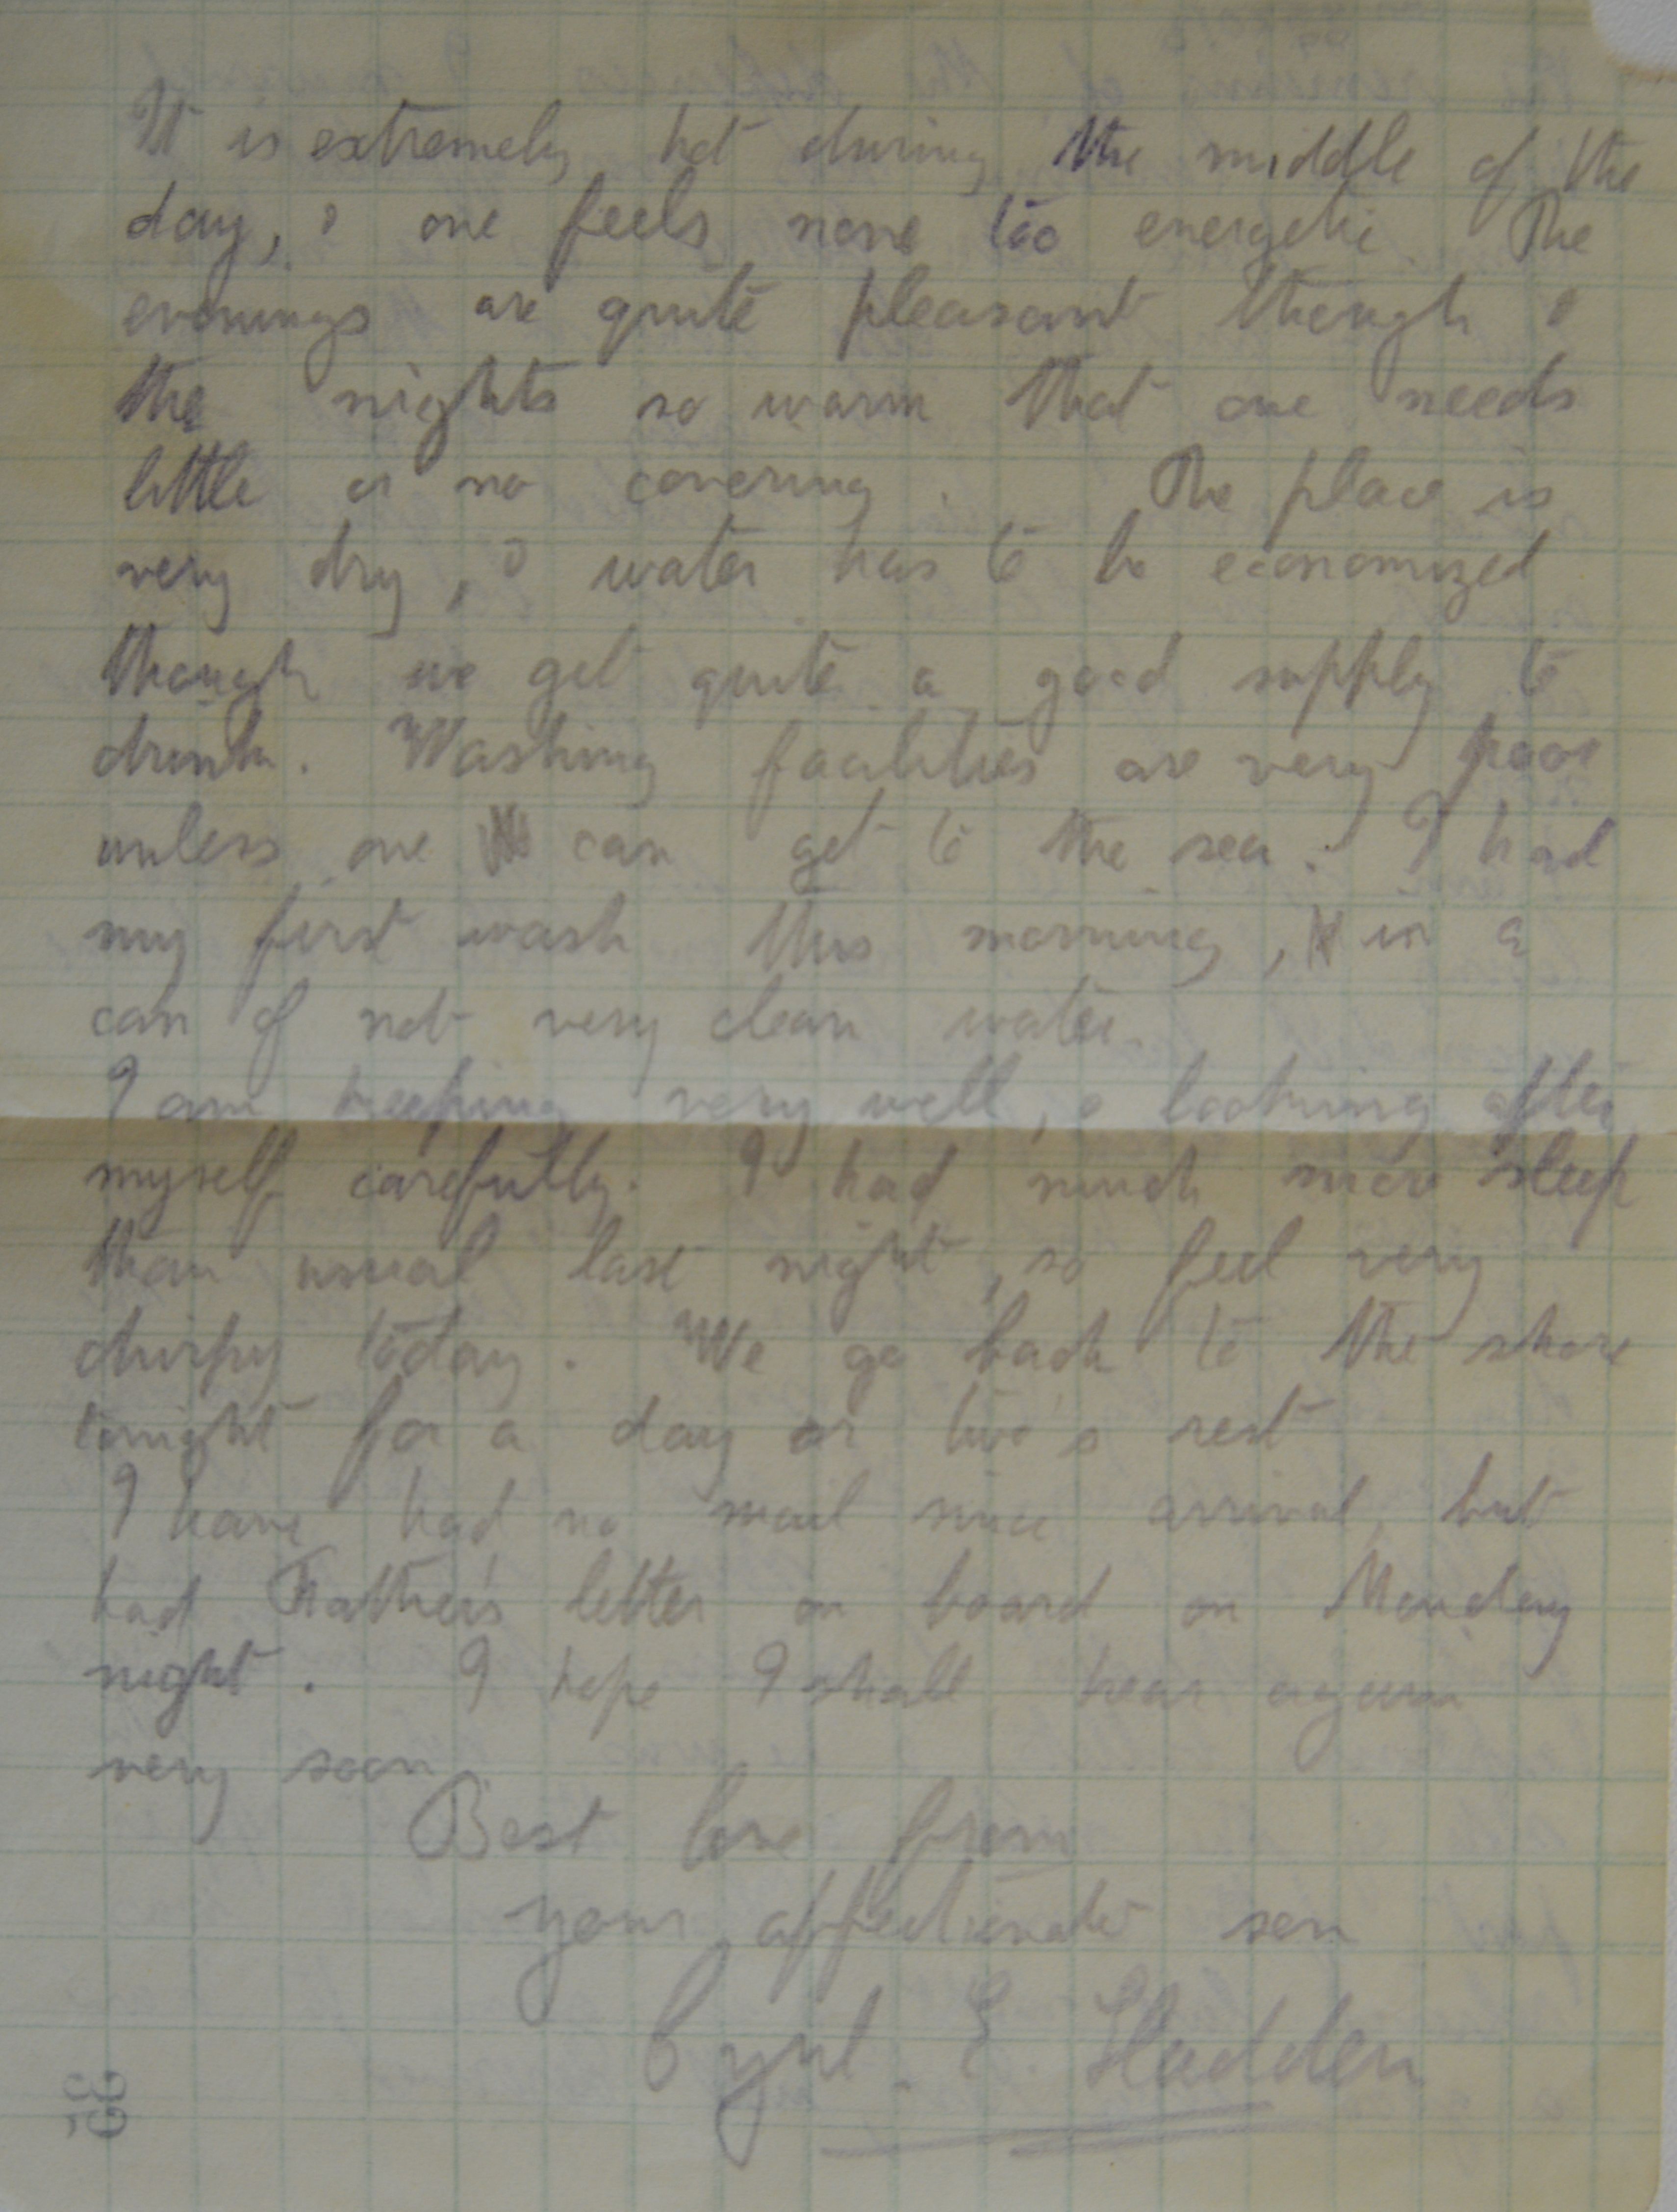 It is extremely hot during the middle of the
day, & one feels none too energetic. The
evenings are quite pleasant though &
the nights so warm that one needs
little or no covering. The place is
very dry, & water has to be economized
though we get quite a good supply to
drink. Washing facilities are very poor
unless one can get to the sea. I had
my first wash this morning, in a
can of not very clean water.
I am keeping very well, & looking after
myself carefully. I had much more sleep
than usual last night, so feel very
chirpy today. We go back to the shore
tonight for a day or two's rest
I have had no mail since arrival, but
had Father's letter on board on Monday
night. I hope I shall hear again
very soon.
Best love from
your affectionate son
Cyril. E Sladden